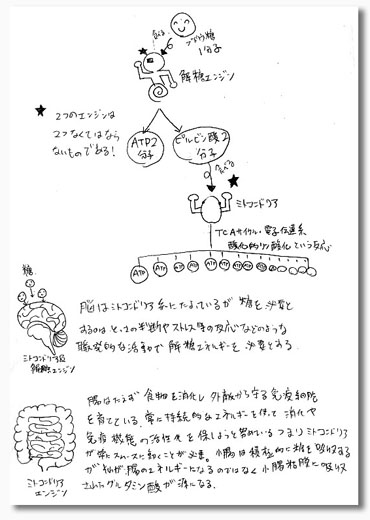 食べる
ブドウ糖
1分子
解糖エンジン
★ 2つのエンジンは
2つなくてはなら
ないものである!
ATP2
分子
ピルビン酸2
分子
食べる
ミトコンドリア
TCAサイクル・電子伝達系
酸化的リン酸化という反応
ATP ATP ATP ATP ATP ATP ATP
糖
脳はミトコンドリア系にたよっているが 糖を必要と
するのは とっさの判断やストレス等の反応などのような
瞬発的な活動で 解糖エネルギーを必要とする
ミトコンドリア&
解糖エンジン
腸はたえず 食物を消化し 外敵から守る免疫細胞
を育てている 常に持続的なエネルギーを使って 消化や
免疫機能の活性化を保しようと努めている つまりミトコンドリア
が常にスムーズに動くことが必要。小腸は積極的に糖を吸収する
が それが腸のエネルギーになるのではなく 小腸粘膜に吸収
されたグルタミン酸が源になる。
ミトコンドリア
エンジン